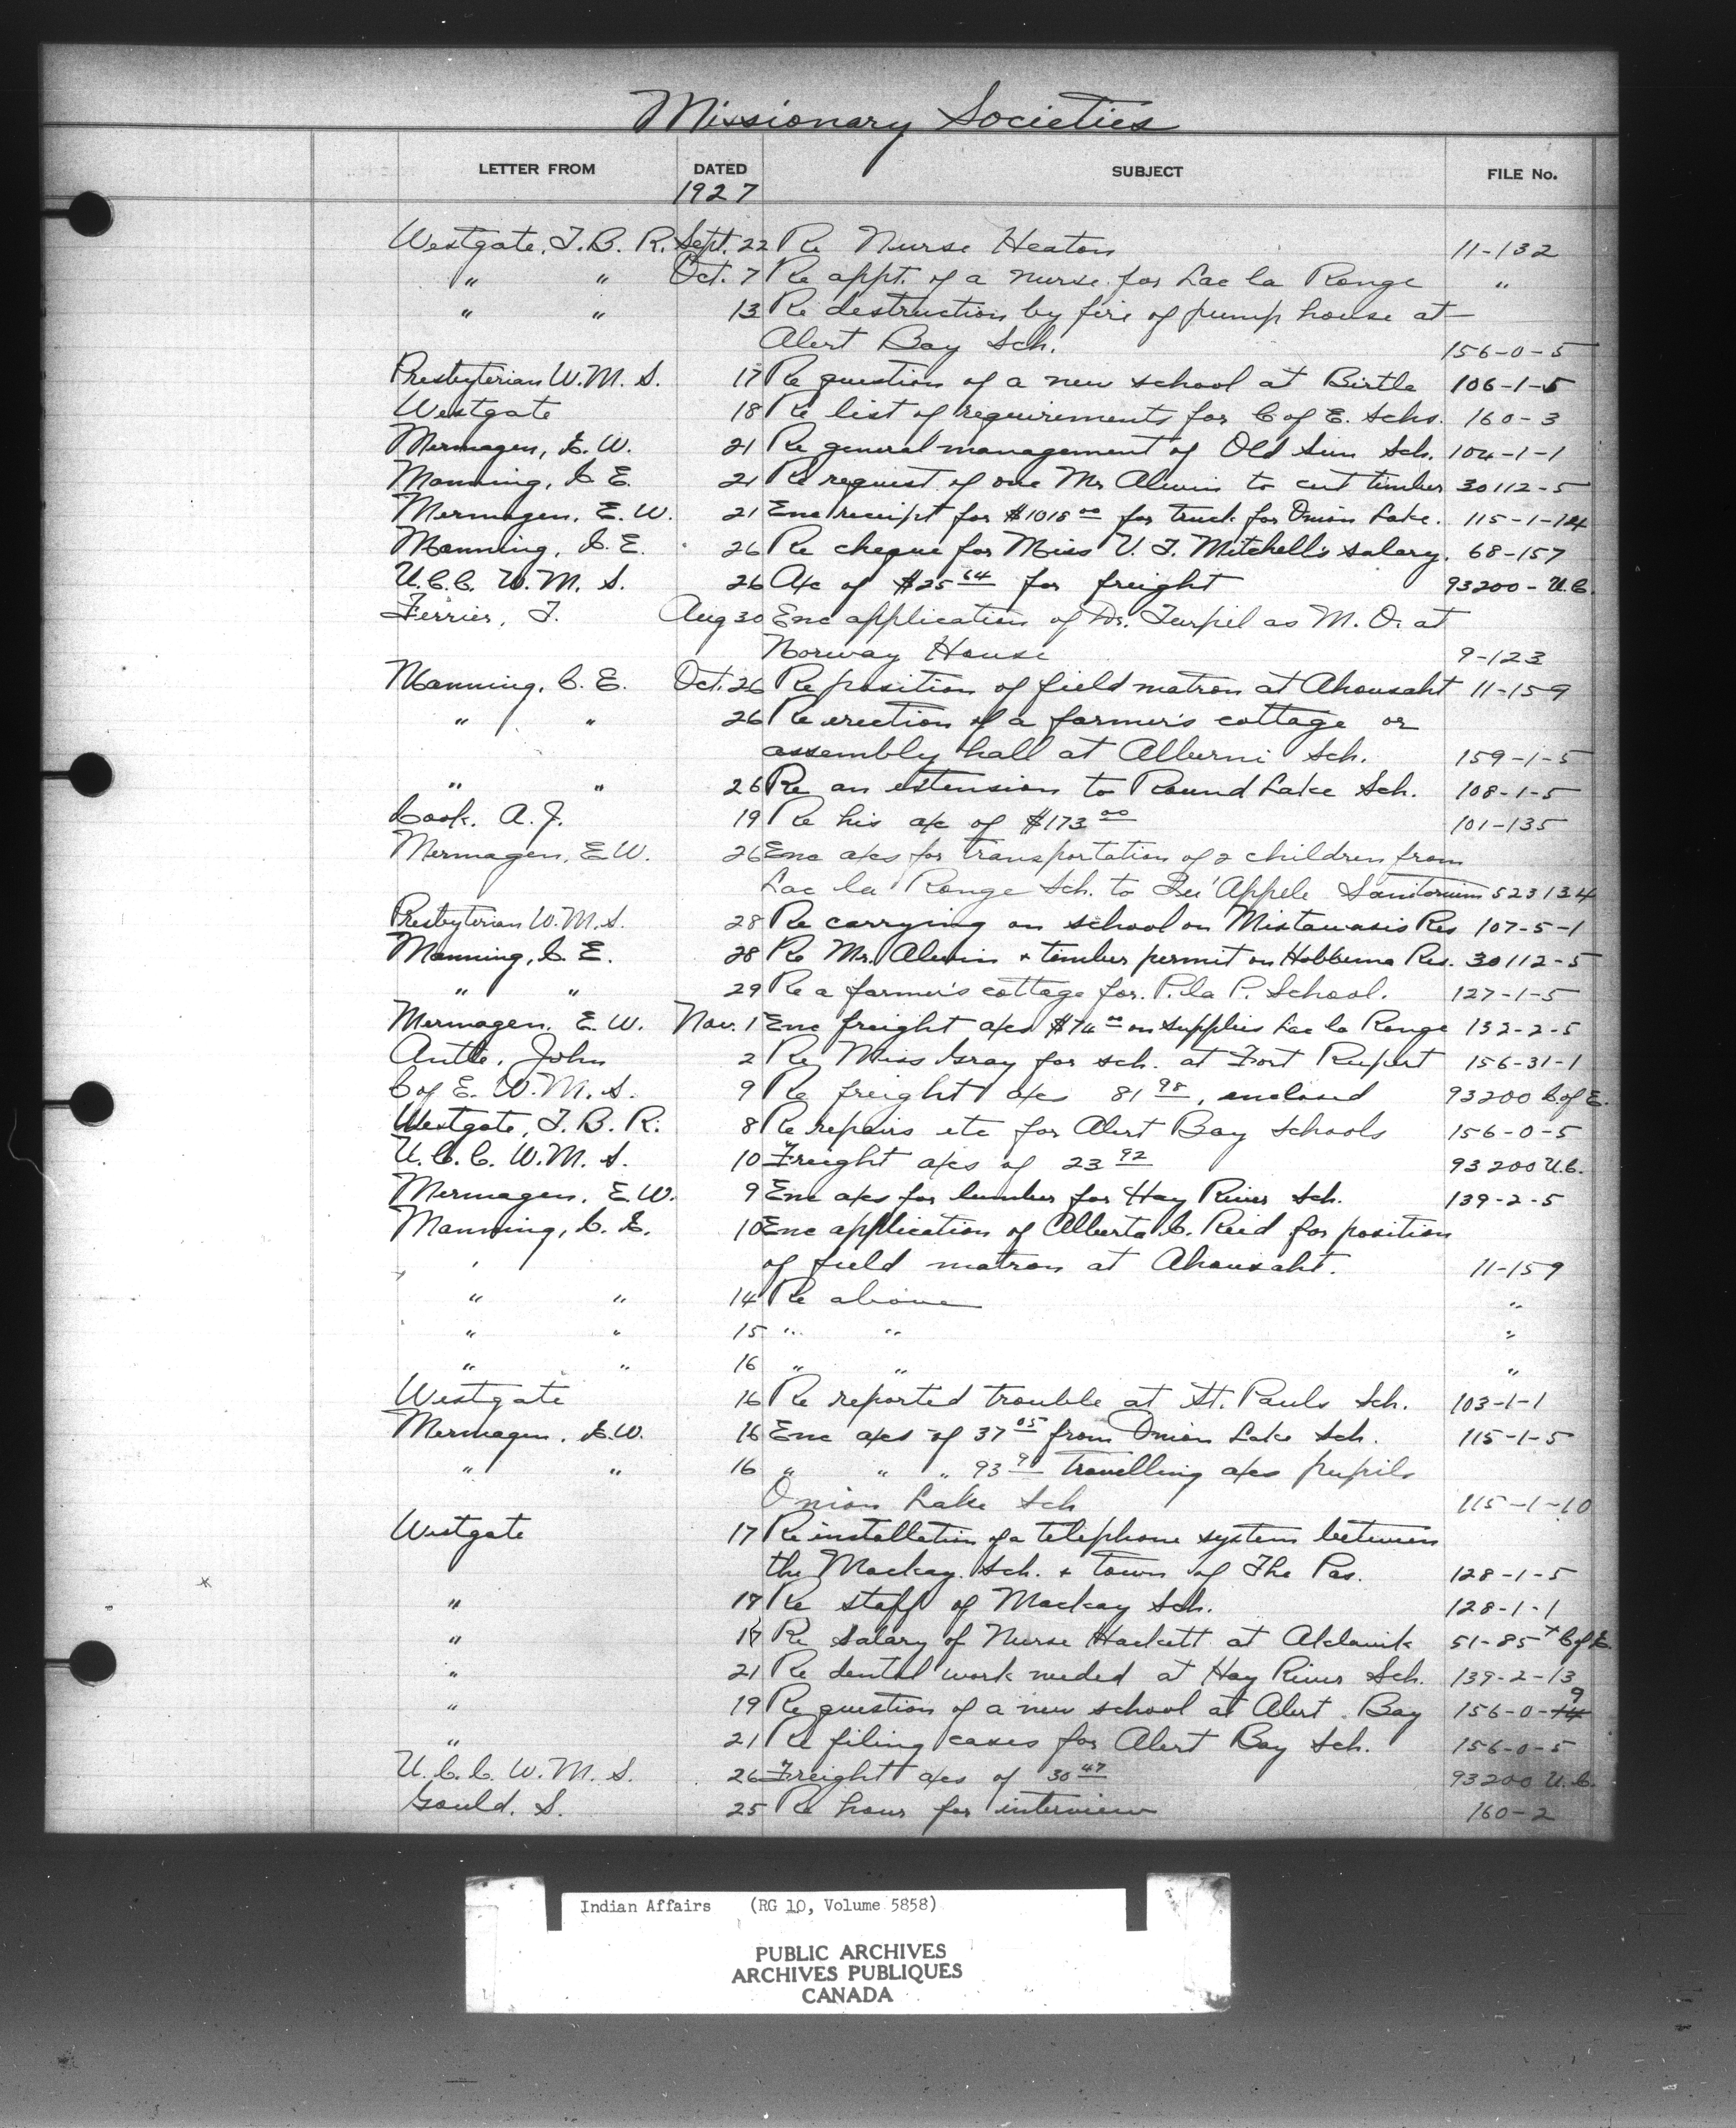 Missionary Societies
LETTER FROM DATED SUBJECT FILE No.
1927
Westgate, T. B. R. Sept. 22 Re Nurse Heaton 11-132
" " Oct. 7 Re appt. of a nurse for Lac la Ronge "
" " 13 Re destruction by fire of pump house at
Alert Bay Sch. 156-0-5
Presbyterian W. M. S. 17 Re question of a new school at Birtle 106-1-5
Westgate 18 Re list of requirements for C of E. Schs. 160-3
Mermagen, E. W. 21 Re general management of Old Sun Sch. 104-1-1
Manning, C. E. 21 Re request of one Mr Alwin to cut timber 30112-5
Mermagen, E. W. 21 Enc receipt for $1018 00 for truck for Onion Lake. 115-1-14
Manning, C. E. 26 Re cheque for Miss V. T. Mitchell's salary. 68-157
U.C.C. W. M. S. 26 A/c of $25 64 for freight 93200 - U.C.
Ferrier, T. Aug 30 Enc application of Dr. Turpel as M. O. at
Norway House 9-123
Manning, C. E. Oct. 26 Re position of field matron at Ahousaht 11-159
" " 26 Re erection of a farmer's cottage or
assembly hall at Alberni Sch. 159-1-5
" " 26 Re an extension to Round Lake Sch. 108-1-5
Cook. A. J. 19 Re his a/c of $173 00 101-135
Mermagen, E. W. 26 Enc a/cs for transportation of 2 children from
Lac la Ronge Sch. to Qu'Appele Sanitorium 523134
Presbyterian W. M. S. 28 Re carrying on school on Mistawasis Res 107-5-1
Manning, C. E. 28 Re Mr. Alwin + timber permit on Hobbema Res. 30112-5
" " 29 Re a farmer's cottage for. P. la P. School. 127-1-5
Mermagen. E. W. Nov. 1 Enc freight a/cs $74 00 on supplies Lac la Ronge 132-2-5
Antle, John 2 Re Miss Gray for sch. at Fort Rupert 156-31-1
C of E. W. M. S. 9 Re freight a/cs 81 98, enclosed 93200 C. of E.
Westgate, T. B. R. 8 Re repairs etc for Alert Bay Schools 156-0-5
U. C. C. W. M. S. 10 Freight a/cs of 23 92 93200 U.C.
Mermagen, E. W. 9 Enc a/cs for lumber for Hay River Sch. 139-2-5
Manning, C. E. 10 Enc application of Alberta C. Reid for position
of field matron at Ahousaht. 11-159
" " 14 Re above "
" " 15 " " "
" " 16 " " "
Westgate 16 Re reported trouble at St. Pauls Sch. 103-1-1
Mermagen, E. W. 16 Enc a/cs of 37 05 from Onion Lake Sch. 115-1-5
" " 16 " " " 93 travelling a/cs pupils
Onion Lake Sch 115-1-10
Westgate 17 Re installation of a telephone system between
the Mackay Sch. + town of The Pas. 128-1-5
" 17 Re staff of Mackay Sch. 128-1-1
" 17 Re salary of Nurse Hackett at Aklavik 51-85 + C of E.
" 21 Re dental work needed at Hay River Sch. 139-2-13
" 19 Re question of a new school at Alert Bay 156-0-9
" 21 Re filing cases for Alert Bay Sch. 156-0-5
U. C. C. W. M. S. 26 Freight a/cs of 30 47 93200 U.C.
Gould. S. 25 Re hour for interview 160-2
Indian Affairs (RG 10, Volume 5858)
PUBLIC ARCHIVES
ARCHIVES PUBLIQUES
CANADA